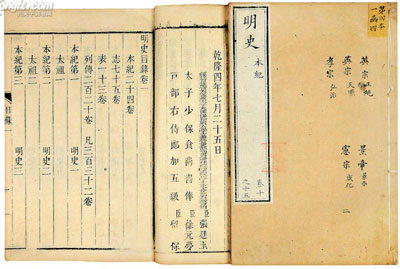 第四本
一函四
英宗 正統 景帝 景泰
英宗 天順 憲宗 成化
孝宗 弘治 二
明史 本紀
卷十
之十五
乾隆四年七月二十五日
臣張廷玉
太子少保食尚書俸臣徐元夢
戶部右侍郎加五級臣 保
明史目錄卷一
本紀二十四卷
志七十五卷
表一十三卷
列傳二百二十卷 凡三百三十二卷
本紀第一 明史一
太祖一
本紀第二 明史二
太祖二
本紀第三 明史三
目錄一